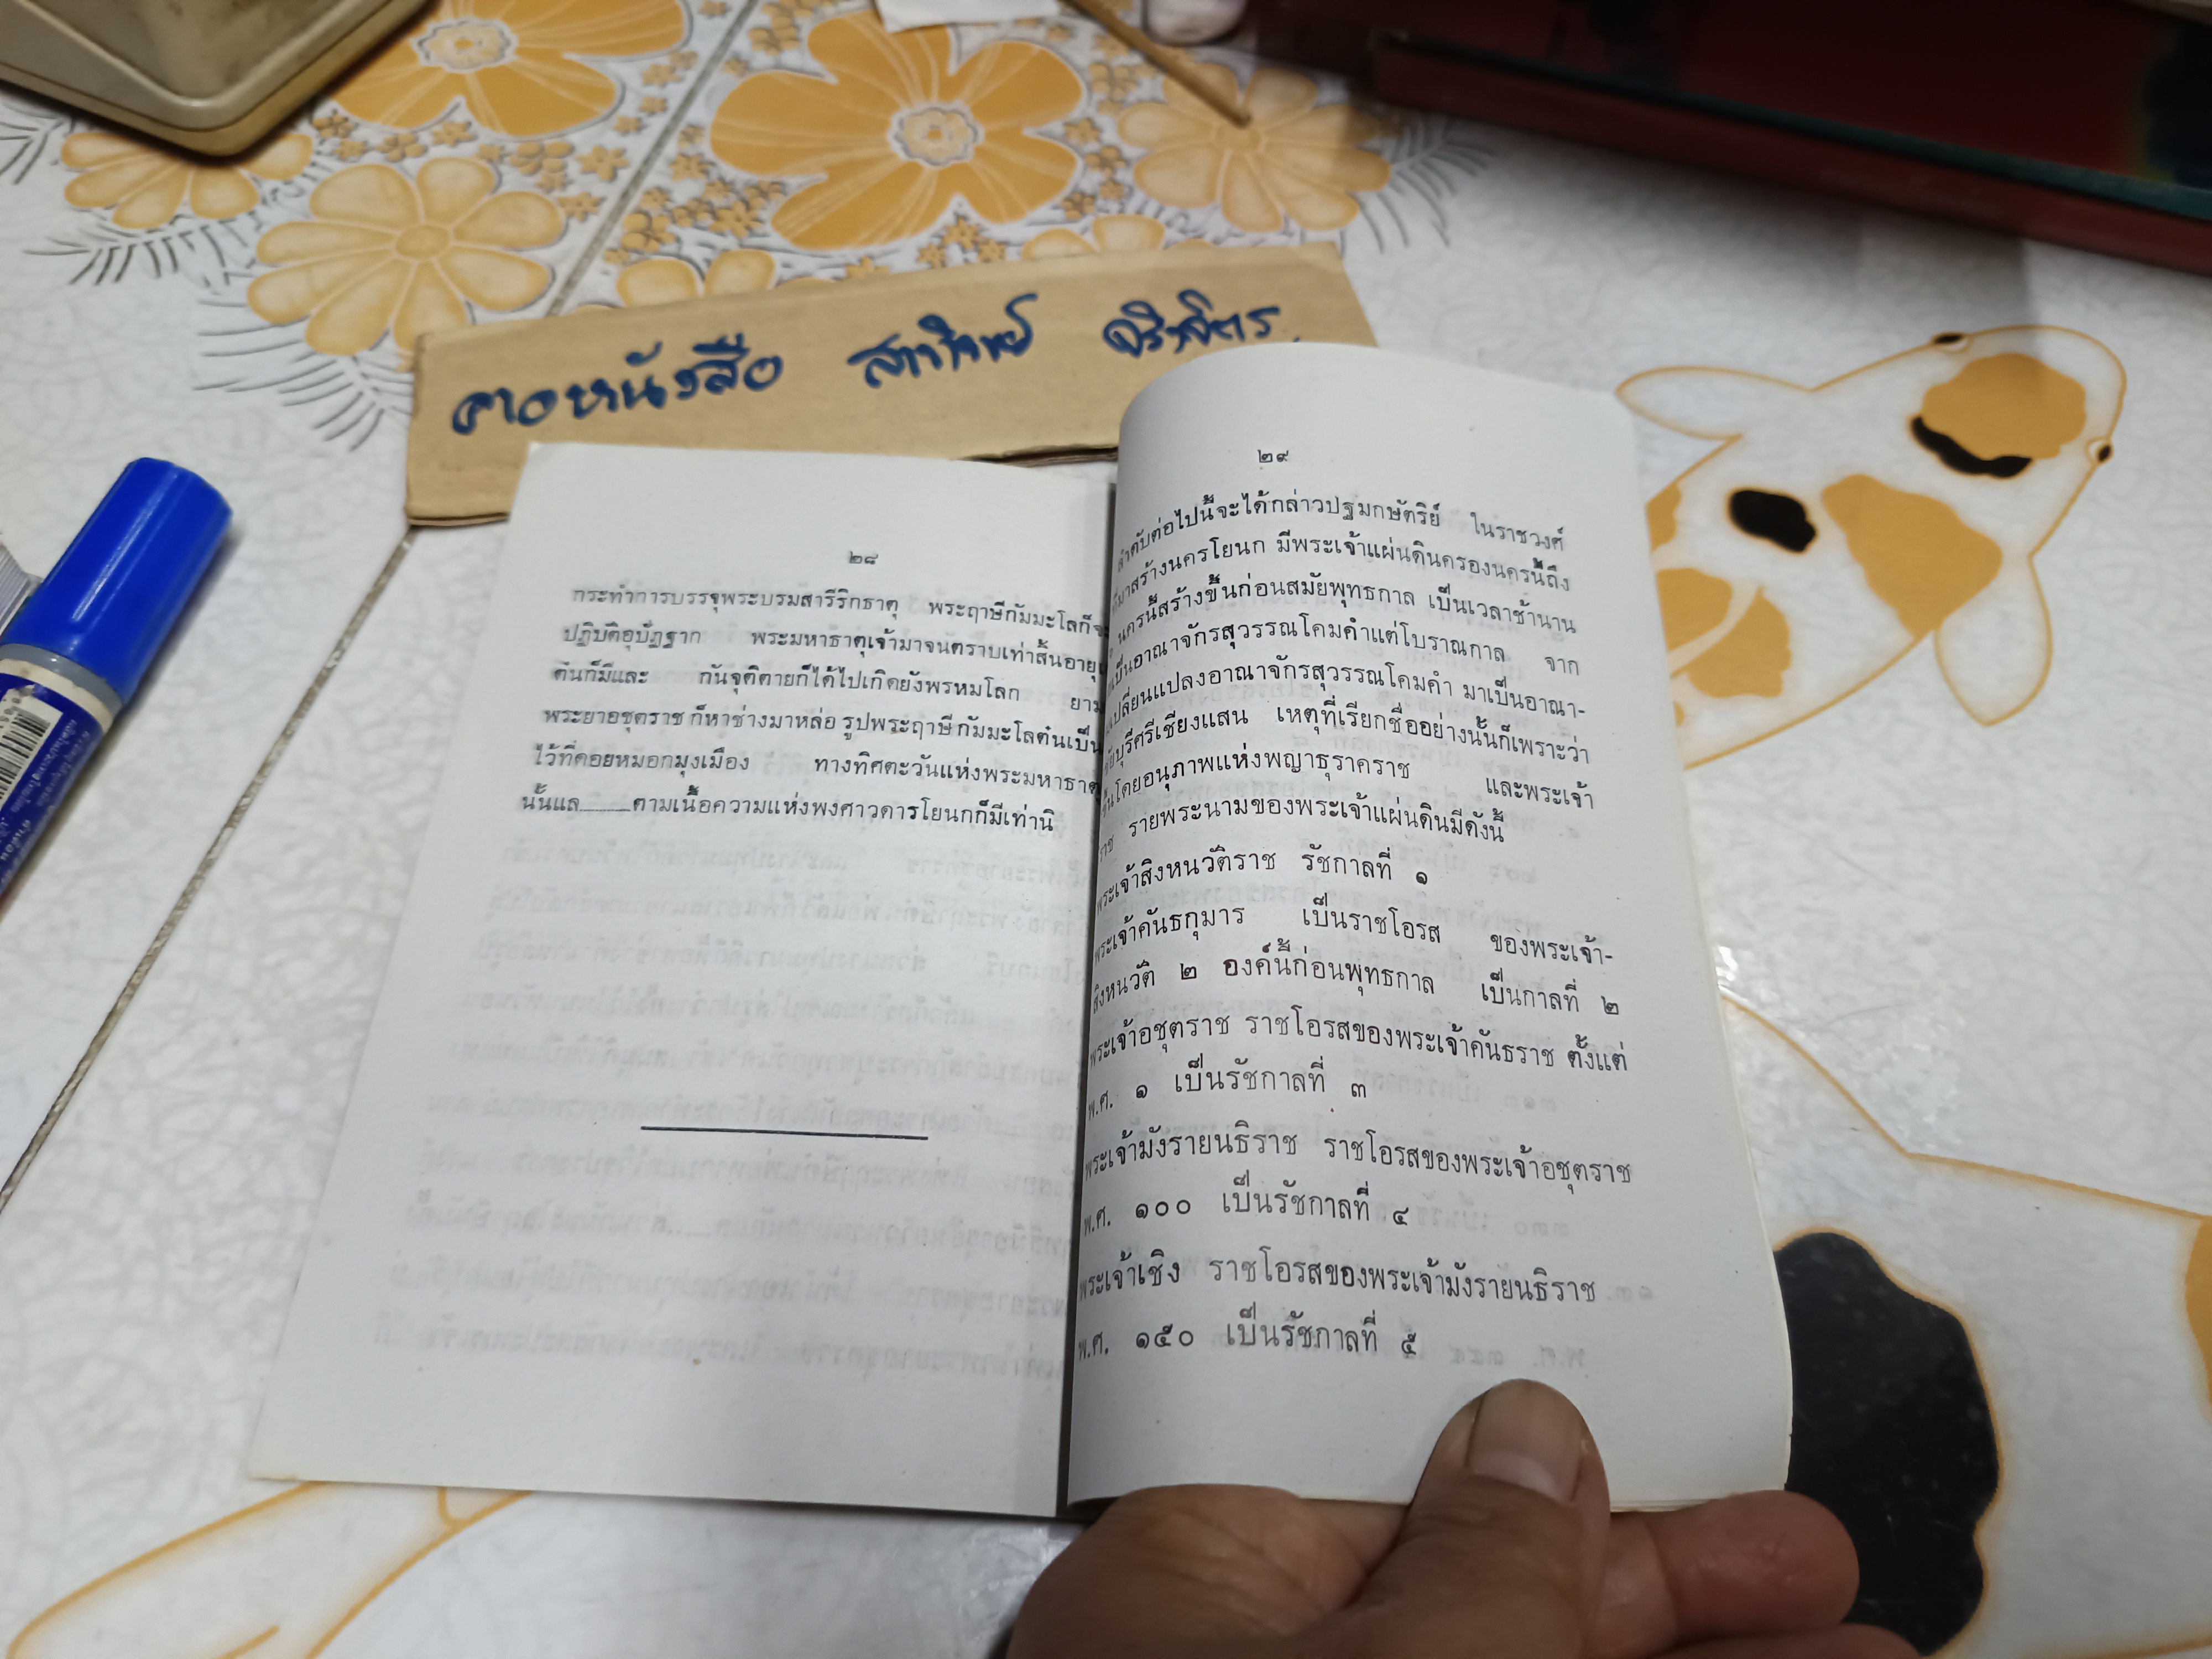 ๒๘
กระทำการบรรจุพระบรมสารีริกธาตุ พระฤาษีกัมมะโลก็จะ
ปฏิบัติอุปัฏฐาก พระมหาธาตุเจ้ามาจนตราบเท่าสิ้นอายุ
ตนก็มีและ กันจุติตายก็ได้ไปเกิดยังพรหมโลก ยาม
พระยาอชุตราช ก็หาช่างมาหล่อ รูปพระฤาษีกัมมะโลตนเป็น
ไว้ที่ดอยหมอกมุงเมือง ทางทิศตะวันแห่งพระมหาธาตุ
นั้นแล ตามเนื้อความแห่งพงศาวดารโยนกก็มีเท่านี้
๒๙
ลำดับต่อไปนี้จะได้กล่าวปฐมกษัตริย์ ในราชวงศ์
มาสร้างนครโยนก มีพระเจ้าแผ่นดินครองนครนี้ถึง
นครนี้สร้างขึ้นก่อนสมัยพุทธกาล เป็นเวลาช้านาน
เป็นอาณาจักรสุวรรณโคมคำแต่โบราณกาล จาก
เปลี่ยนแปลงอาณาจักรสุวรรณโคมคำ มาเป็นอาณา-
บุรีศรีเชียงแสน เหตุที่เรียกชื่ออย่างนั้นก็เพราะว่า
โดยอนุภาพแห่งพญาธุราคราช และพระเจ้า
ราช รายพระนามของพระเจ้าแผ่นดินมีดังนี้
พระเจ้าสิงหนวัติราช รัชกาลที่ ๑
พระเจ้าคันธกุมาร เป็นราชโอรส ของพระเจ้า-
สิงหนวัติ ๒ องค์นี้ก่อนพุทธกาล เป็นกาลที่ ๒
พระเจ้าอชุตราช ราชโอรสของพระเจ้าคันธราช ตั้งแต่
พ.ศ. ๑ เป็นรัชกาลที่ ๓
พระเจ้ามังรายนธิราช ราชโอรสของพระเจ้าอชุตราช
พ.ศ. ๑๐๐ เป็นรัชกาลที่ ๔
พระเจ้าเชิง ราชโอรสของพระเจ้ามังรายนธิราช
พ.ศ. ๑๕๐ เป็นรัชกาลที่ ๕